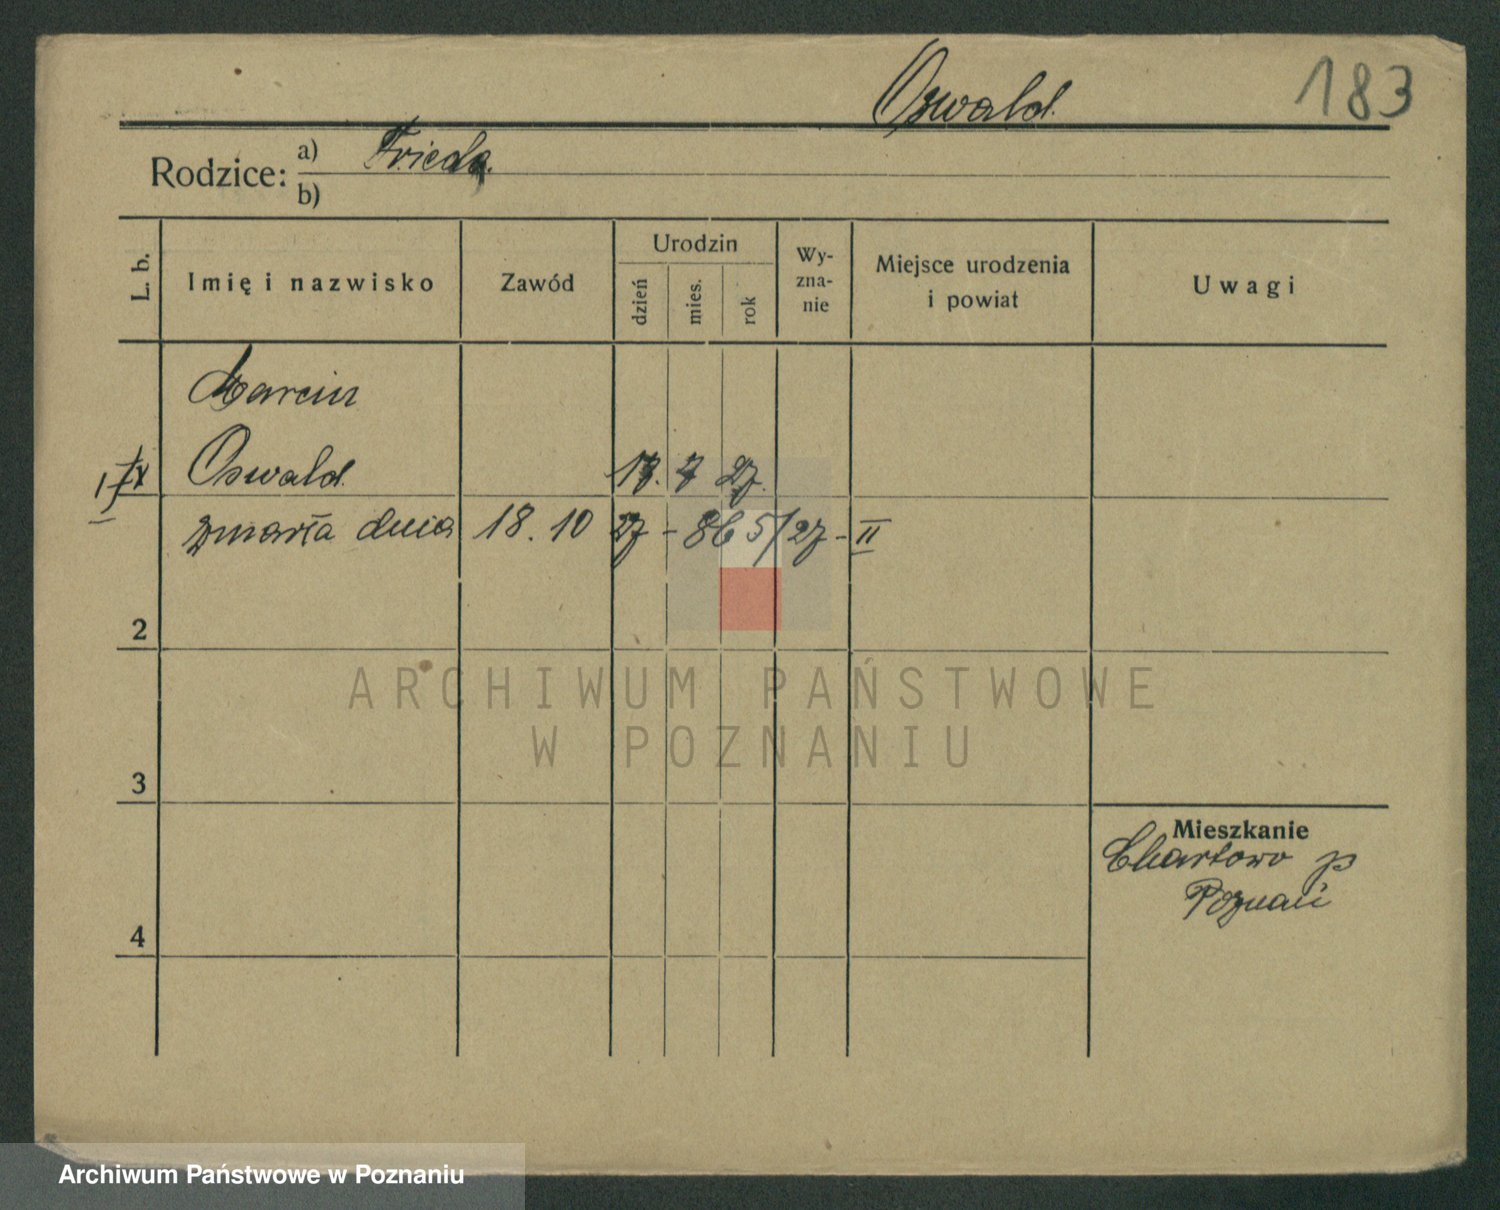 Oswald.
183
Rodzice: a) Frieda.
b)
L. b.
Imię i nazwisko
Zawód
Urodzin
dzień
mies.
rok
Wy-
zna-
nie
Miejsce urodzenia
i powiat
Uwagi
Marcin
Oswald. 17. 7 27.
zmarła dnia 18. 10 27 - 865/27 - II
2
3
4
Mieszkanie
Chartowo p
Poznań
ARCHIWUM PAŃSTWOWE
W POZNANIU
Archiwum Państwowe w Poznaniu